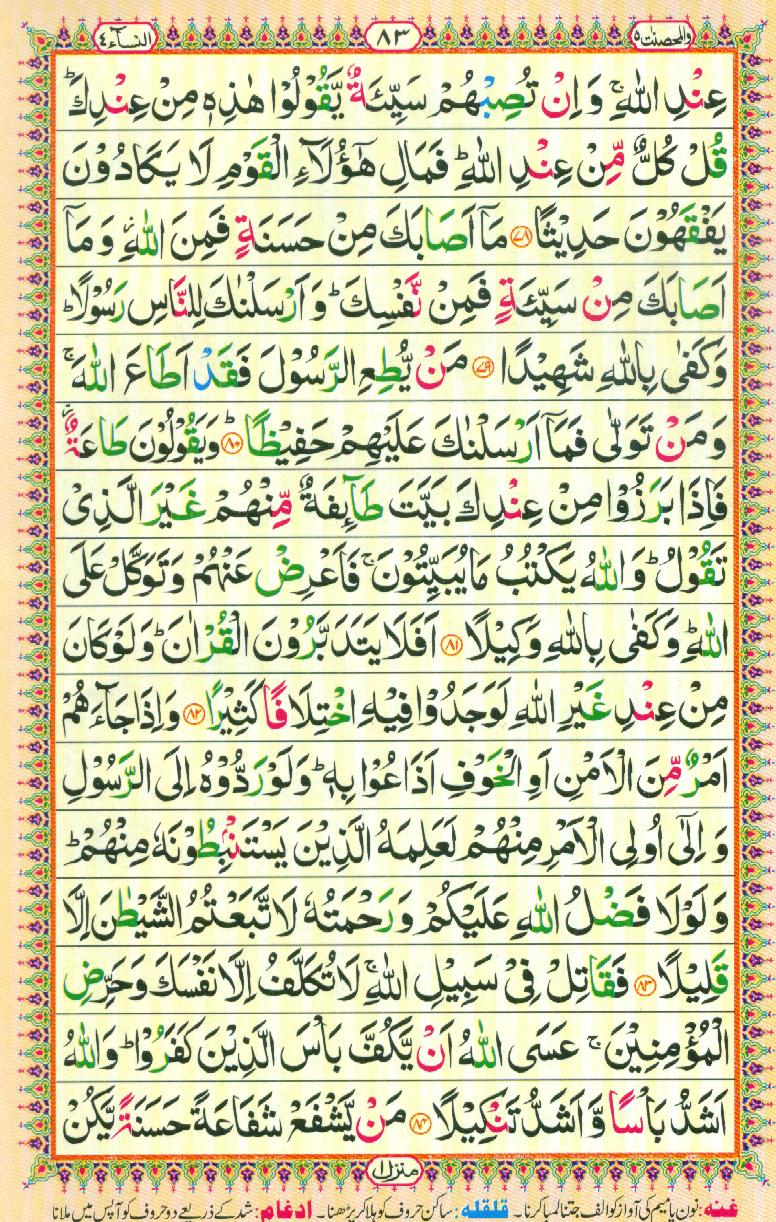 والمحصنت ٥ ٨٣ النسآء ٤
عِنْدِ اللّٰهِ ۚ وَ اِنْ تُصِبْهُمْ سَيِّئَةٌ يَّقُوْلُوْا هٰذِهٖ مِنْ عِنْدِكَ ؕ
قُلْ كُلٌّ مِّنْ عِنْدِ اللّٰهِ ؕ فَمَالِ هٰۤؤُلَآءِ الْقَوْمِ لَا يَكَادُوْنَ
يَفْقَهُوْنَ حَدِيْثًا ﴿۷۸﴾ مَاۤ اَصَابَكَ مِنْ حَسَنَةٍ فَمِنَ اللّٰهِ ؗ وَ مَاۤ
اَصَابَكَ مِنْ سَيِّئَةٍ فَمِنْ نَّفْسِكَ ؕ وَ اَرْسَلْنٰكَ لِلنَّاسِ رَسُوْلًا ؕ
وَ كَفٰى بِاللّٰهِ شَهِيْدًا ﴿۷۹﴾ مَنْ يُّطِعِ الرَّسُوْلَ فَقَدْ اَطَاعَ اللّٰهَ ۚ
وَ مَنْ تَوَلّٰى فَمَاۤ اَرْسَلْنٰكَ عَلَيْهِمْ حَفِيْظًا ؕ﴿۸۰﴾ وَيَقُوْلُوْنَ طَاعَةٌ ؗ
فَاِذَا بَرَزُوْا مِنْ عِنْدِكَ بَيَّتَ طَآئِفَةٌ مِّنْهُمْ غَيْرَ الَّذِىْ
تَقُوْلُ ؕ وَ اللّٰهُ يَكْتُبُ مَا يُبَيِّتُوْنَ ۚ فَاَعْرِضْ عَنْهُمْ وَ تَوَكَّلْ عَلَى
اللّٰهِ ؕ وَ كَفٰى بِاللّٰهِ وَكِيْلًا ﴿۸۱﴾ اَفَلَا يَتَدَبَّرُوْنَ الْقُرْاٰنَ ؕ وَلَوْ كَانَ
مِنْ عِنْدِ غَيْرِ اللّٰهِ لَوَجَدُوْا فِيْهِ اخْتِلَافًا كَثِيْرًا ﴿۸۲﴾ وَاِذَا جَآءَهُمْ
اَمْرٌ مِّنَ الْاَمْنِ اَوِ الْخَوْفِ اَذَاعُوْا بِهٖ ؕ وَلَوْ رَدُّوْهُ اِلَى الرَّسُوْلِ
وَ اِلٰۤى اُولِى الْاَمْرِ مِنْهُمْ لَعَلِمَهُ الَّذِيْنَ يَسْتَنْۢبِطُوْنَهٗ مِنْهُمْ ؕ
وَ لَوْلَا فَضْلُ اللّٰهِ عَلَيْكُمْ وَ رَحْمَتُهٗ لَاتَّبَعْتُمُ الشَّيْطٰنَ اِلَّا
قَلِيْلًا ﴿۸۳﴾ فَقَاتِلْ فِىْ سَبِيْلِ اللّٰهِ ۚ لَا تُكَلَّفُ اِلَّا نَفْسَكَ وَحَرِّضِ
الْمُؤْمِنِيْنَ ۚ عَسَى اللّٰهُ اَنْ يَّكُفَّ بَاْسَ الَّذِيْنَ كَفَرُوْا ؕ وَاللّٰهُ
اَشَدُّ بَاْسًا وَّ اَشَدُّ تَنْكِيْلًا ﴿۸۴﴾ مَنْ يَّشْفَعْ شَفَاعَةً حَسَنَةً يَّكُنْ
منزل ١
غنه: نون یا میم کی آواز کو الف جتنا لمبا کرنا۔ قلقله: ساکن حروف کو ہلا کر پڑھنا۔ ادغام: شد کے ذریعے دو حروف کو آپس میں ملانا